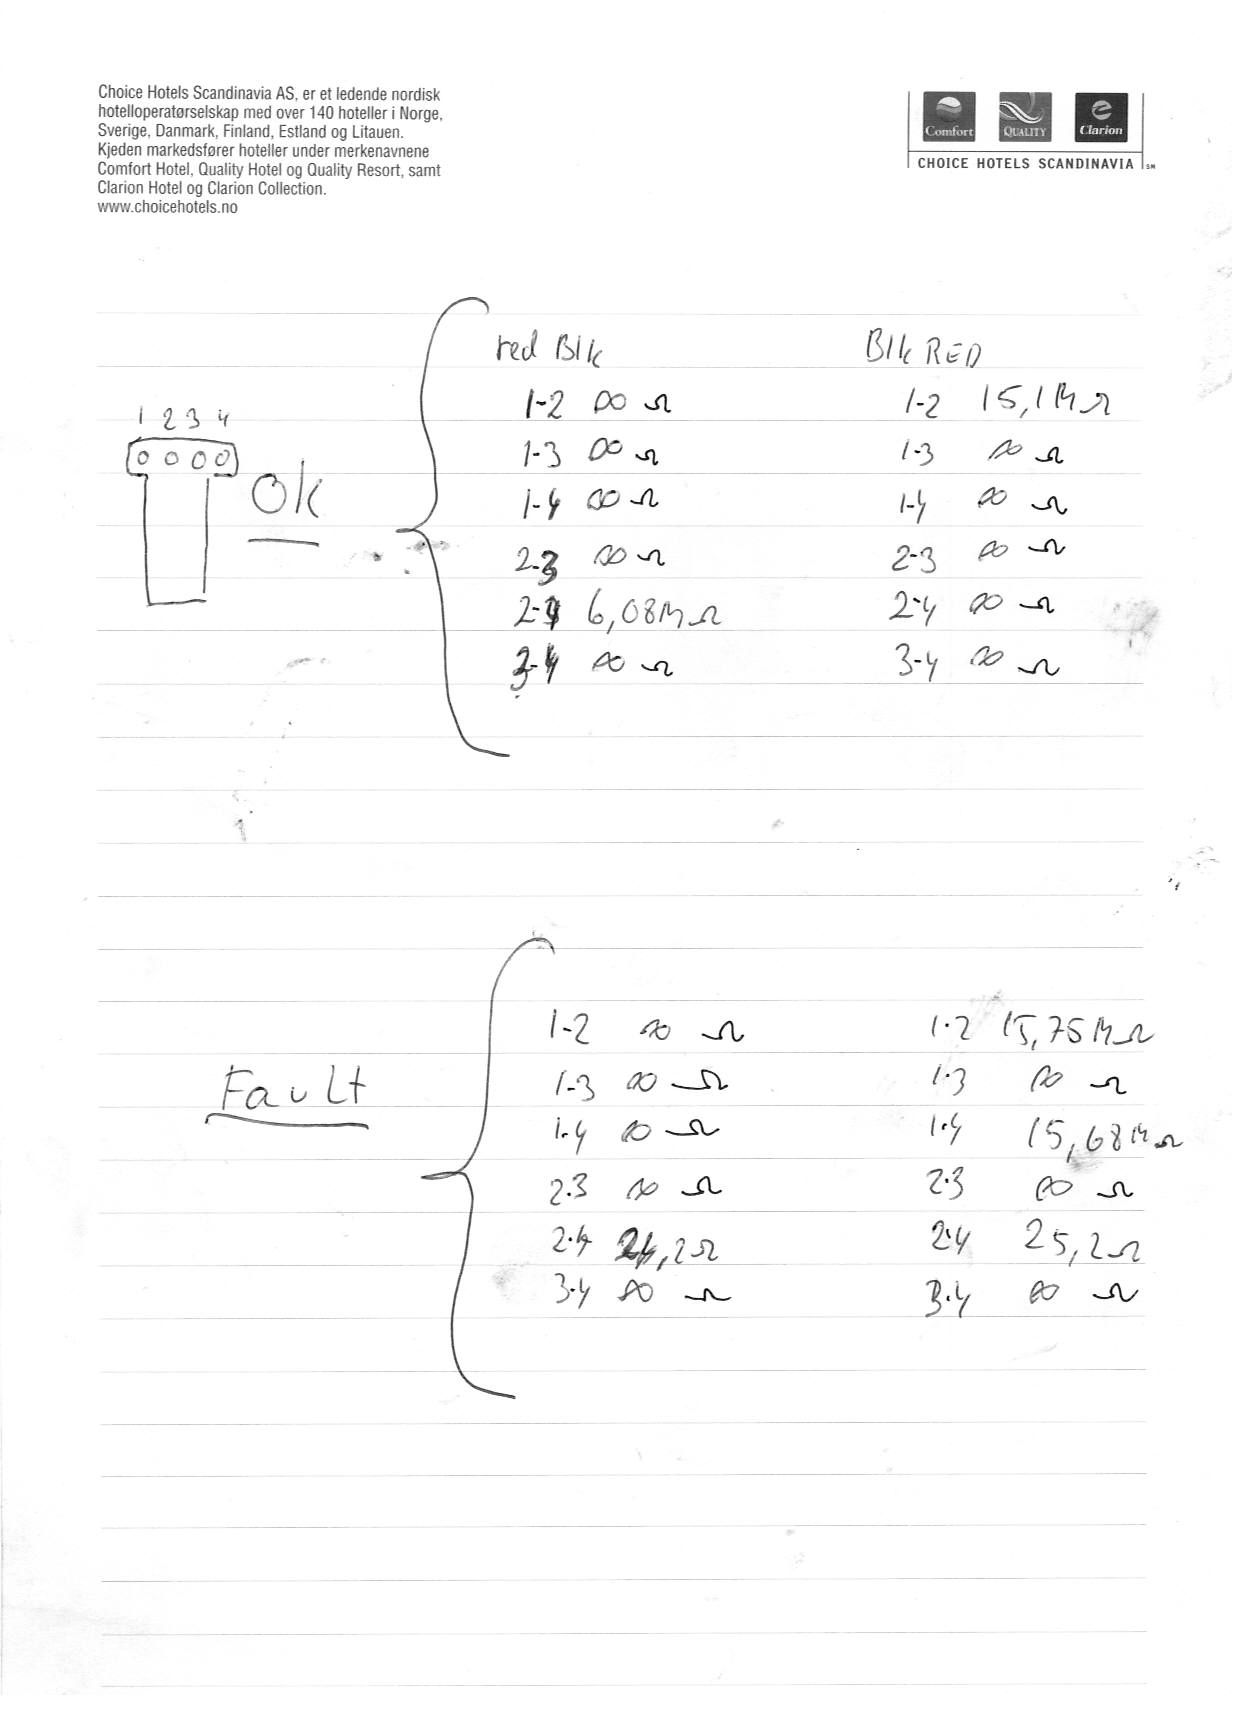 Choice Hotels Scandinavia AS, er et ledende nordisk
hotelloperatørselskap med over 140 hoteller i Norge,
Sverige, Danmark, Finland, Estland og Litauen.
Kjeden markedsfører hoteller under merkenavnene
Comfort Hotel, Quality Hotel og Quality Resort, samt
Clarion Hotel og Clarion Collection.
www.choicehotels.no
Comfort QUALITY Clarion
CHOICE HOTELS SCANDINAVIA SM
red Blk
1-2 ∞ Ω
1-3 ∞ Ω
1-4 ∞ Ω
2-3 ∞ Ω
2-4 6,08MΩ
3-4 ∞ Ω
Blk RED
1-2 15,1MΩ
1-3 ∞ Ω
1-4 ∞ Ω
2-3 ∞ Ω
2-4 ∞ Ω
3-4 ∞ Ω
1 2 3 4
Ok
Fault
1-2 ∞ Ω
1-3 ∞ Ω
1-4 ∞ Ω
2-3 ∞ Ω
2-4 24,2Ω
3-4 ∞ Ω
1-2 15,75MΩ
1-3 ∞ Ω
1-4 15,68MΩ
2-3 ∞ Ω
2-4 25,2Ω
3-4 ∞ Ω